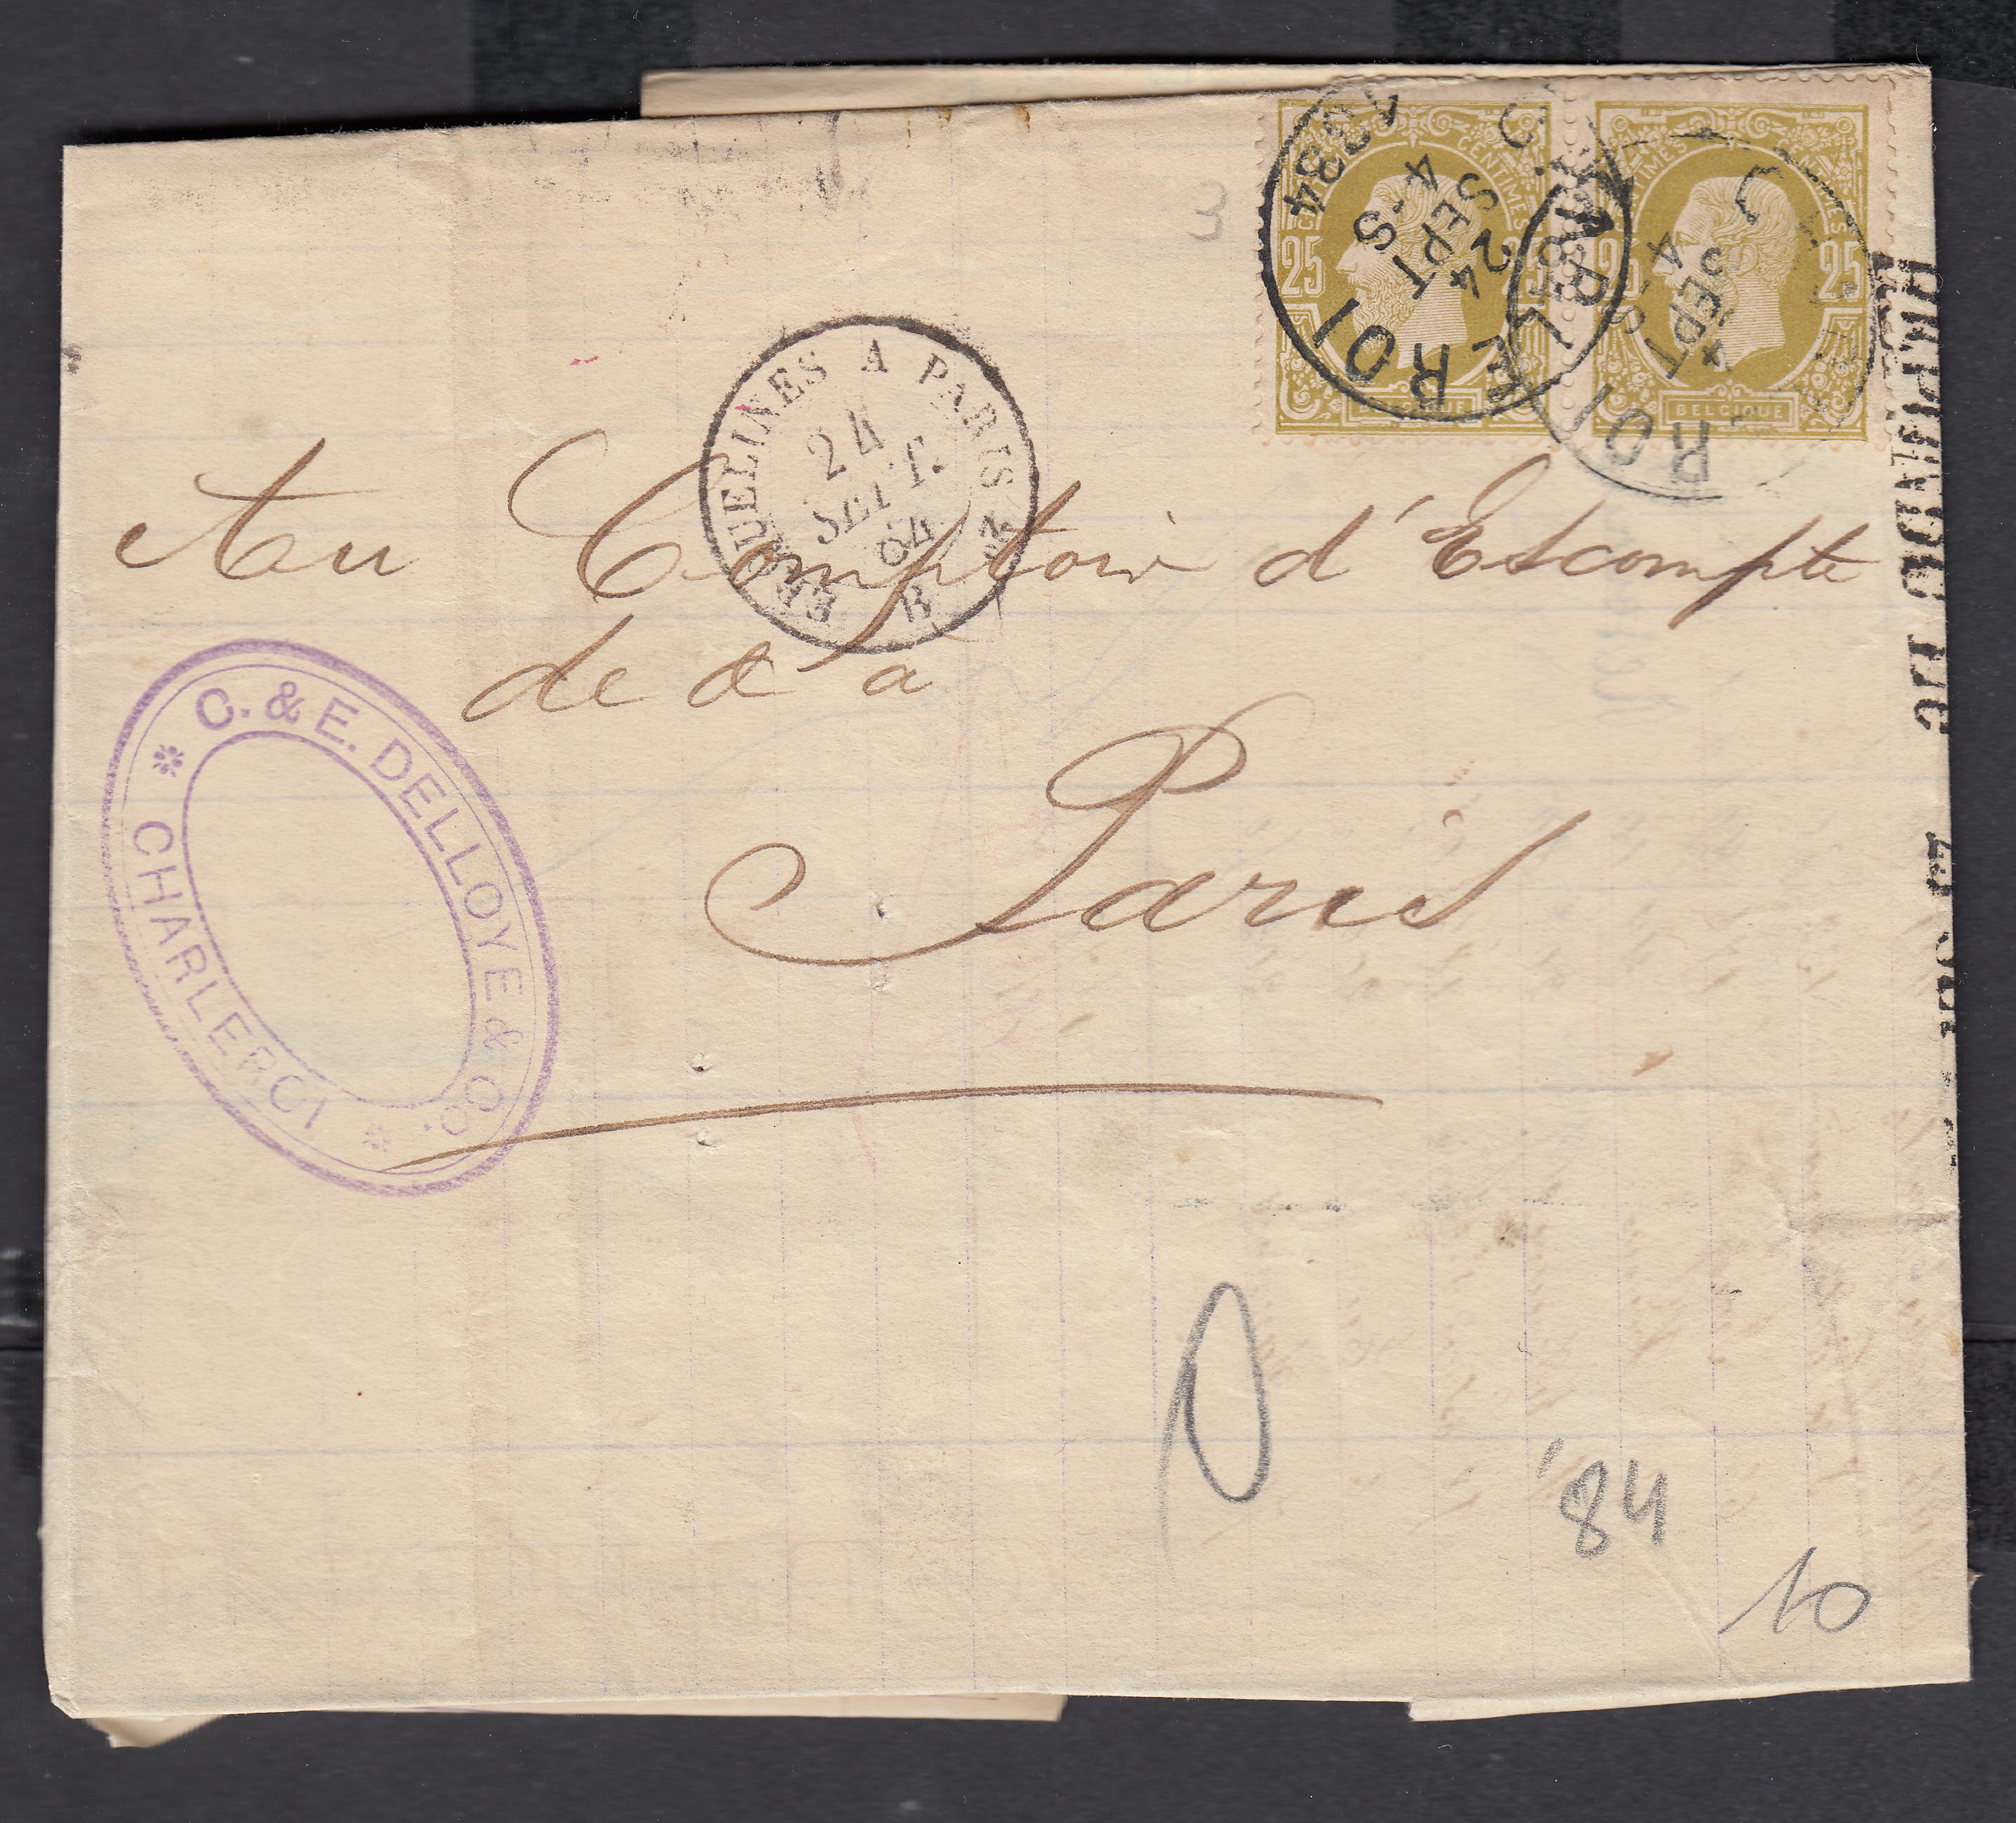 CENTIMES
25
BELGIQUE
TIMES
25
BELGIQUE
CHARLEROI
24
SEPT
4-S
1884
ROI
SEPT
4
3
ERQUELINES A PARIS
24
SEPT.
84
B
Au Comptoir d'Escompte
de & a
Paris
C. & E. DELLOYE & Co.
* CHARLEROI *
'84
10